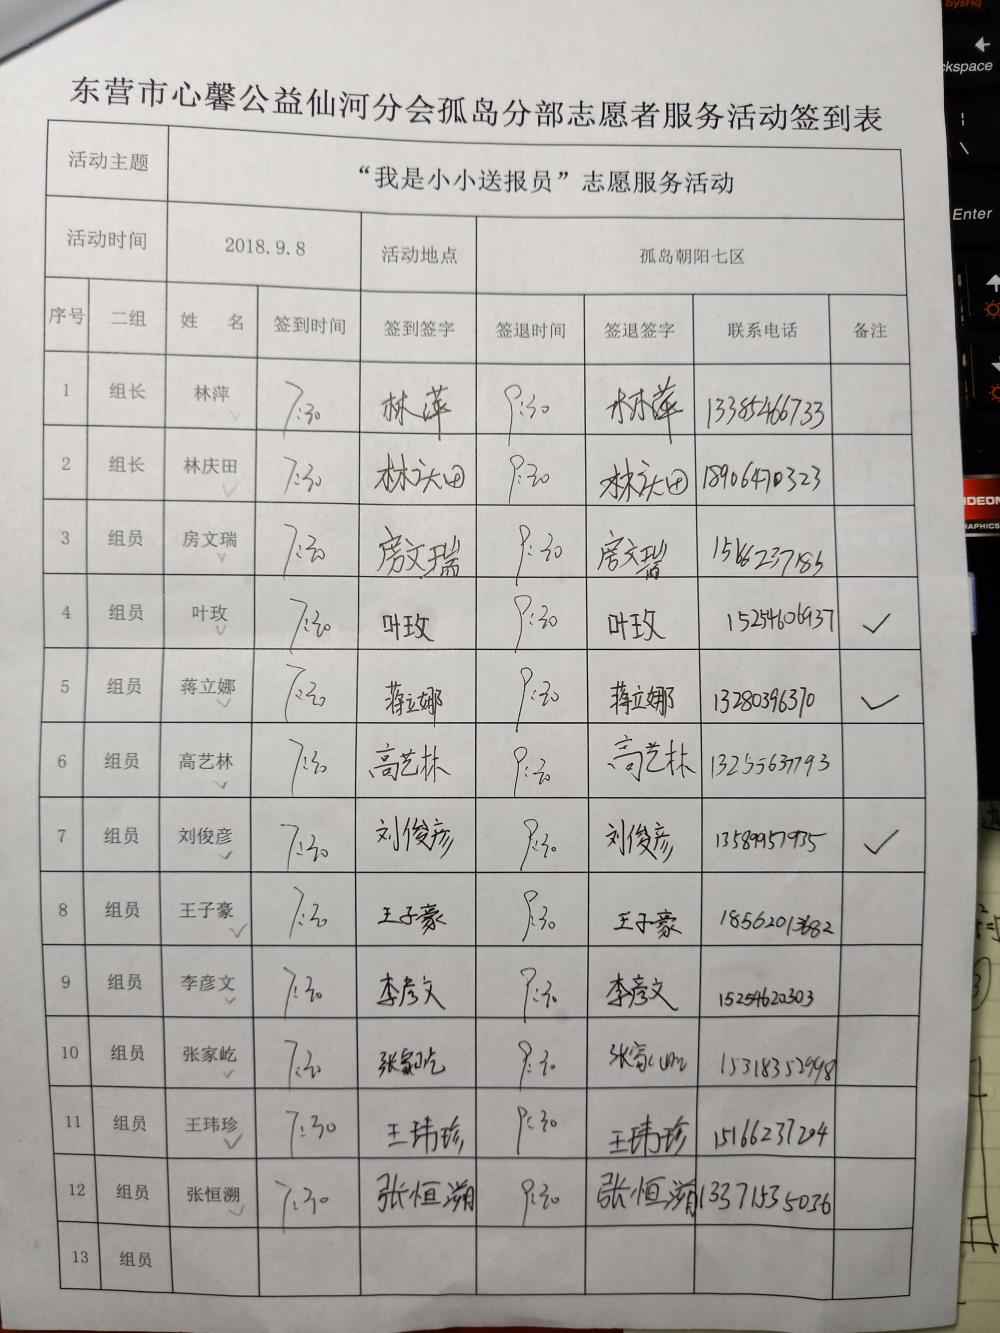 东营市心馨公益仙河分会孤岛分部志愿者服务活动签到表
活动主题 “我是小小送报员”志愿服务活动
活动时间 2018.9.8 活动地点 孤岛朝阳七区
序号 二组 姓 名 签到时间 签到签字 签退时间 签退签字 联系电话 备注
1 组长 林萍 7:30 林萍 9:30 林萍 13385466733
2 组长 林庆田 7:30 林庆田 9:30 林庆田 18906470323
3 组员 房文瑞 7:30 房文瑞 9:30 房文瑞 15166237185
4 组员 叶玫 7:30 叶玫 9:30 叶玫 15254606937 ✓
5 组员 蒋立娜 7:30 蒋立娜 9:30 蒋立娜 13280396370 ✓
6 组员 高艺林 7:30 高艺林 9:30 高艺林 13255637793
7 组员 刘俊彦 7:30 刘俊彦 9:30 刘俊彦 13589957935 ✓
8 组员 王子豪 7:30 王子豪 9:30 王子豪 18562013682
9 组员 李彦文 7:30 李彦文 9:30 李彦文 15254620303
10 组员 张家屹 7:30 张家屹 9:30 张家屹 15318352998
11 组员 王玮珍 7:30 王玮珍 9:30 王玮珍 15166237204
12 组员 张恒溯 7:30 张恒溯 9:30 张恒溯 13371535036
13 组员
SysRq
ckspace
Enter